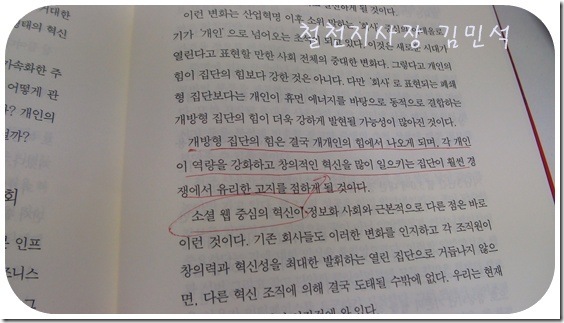 이런 변화는 산업혁명 이후 소위 말하는 '회사'
기가 '개인' 으로 넘어오는 있다. 이것은 새로운 시대가
열린다고 표현할 만한 사회 전체의 중대한 변화다. 그렇다고 개인의
힘이 집단의 힘보다 강한 것은 아니다. 다만 '회사' 로 표현되는 폐쇄
형 집단보다는 개인이 휴먼 에너지를 바탕으로 동적으로 결합하는
개방형 집단의 힘이 더욱 강하게 발현될 가능성이 많아진 것이다.
개방형 집단의 힘은 결국 개개인의 힘에서 나오게 되며, 각 개인
이 역량을 강화하고 창의적인 혁신을 많이 일으키는 집단이 훨씬 경
쟁에서 유리한 고지를 점하게 될 것이다.
소셜 웹 중심의 혁신이 정보화 사회와 근본적으로 다른 점은 바로
이런 것이다. 기존 회사들도 이러한 변화를 인지하고 각 조직원이
창의력과 혁신성을 최대한 발휘하는 열린 집단으로 거듭나지 않으
면, 다른 혁신 조직에 의해 결국 도태될 수밖에 없다. 우리는 현재
대한
태의 혁신
가속화한 주
어떻게 관
가? 개인의
할까?
회
인프
즈니스
그
절천지사장 김민석